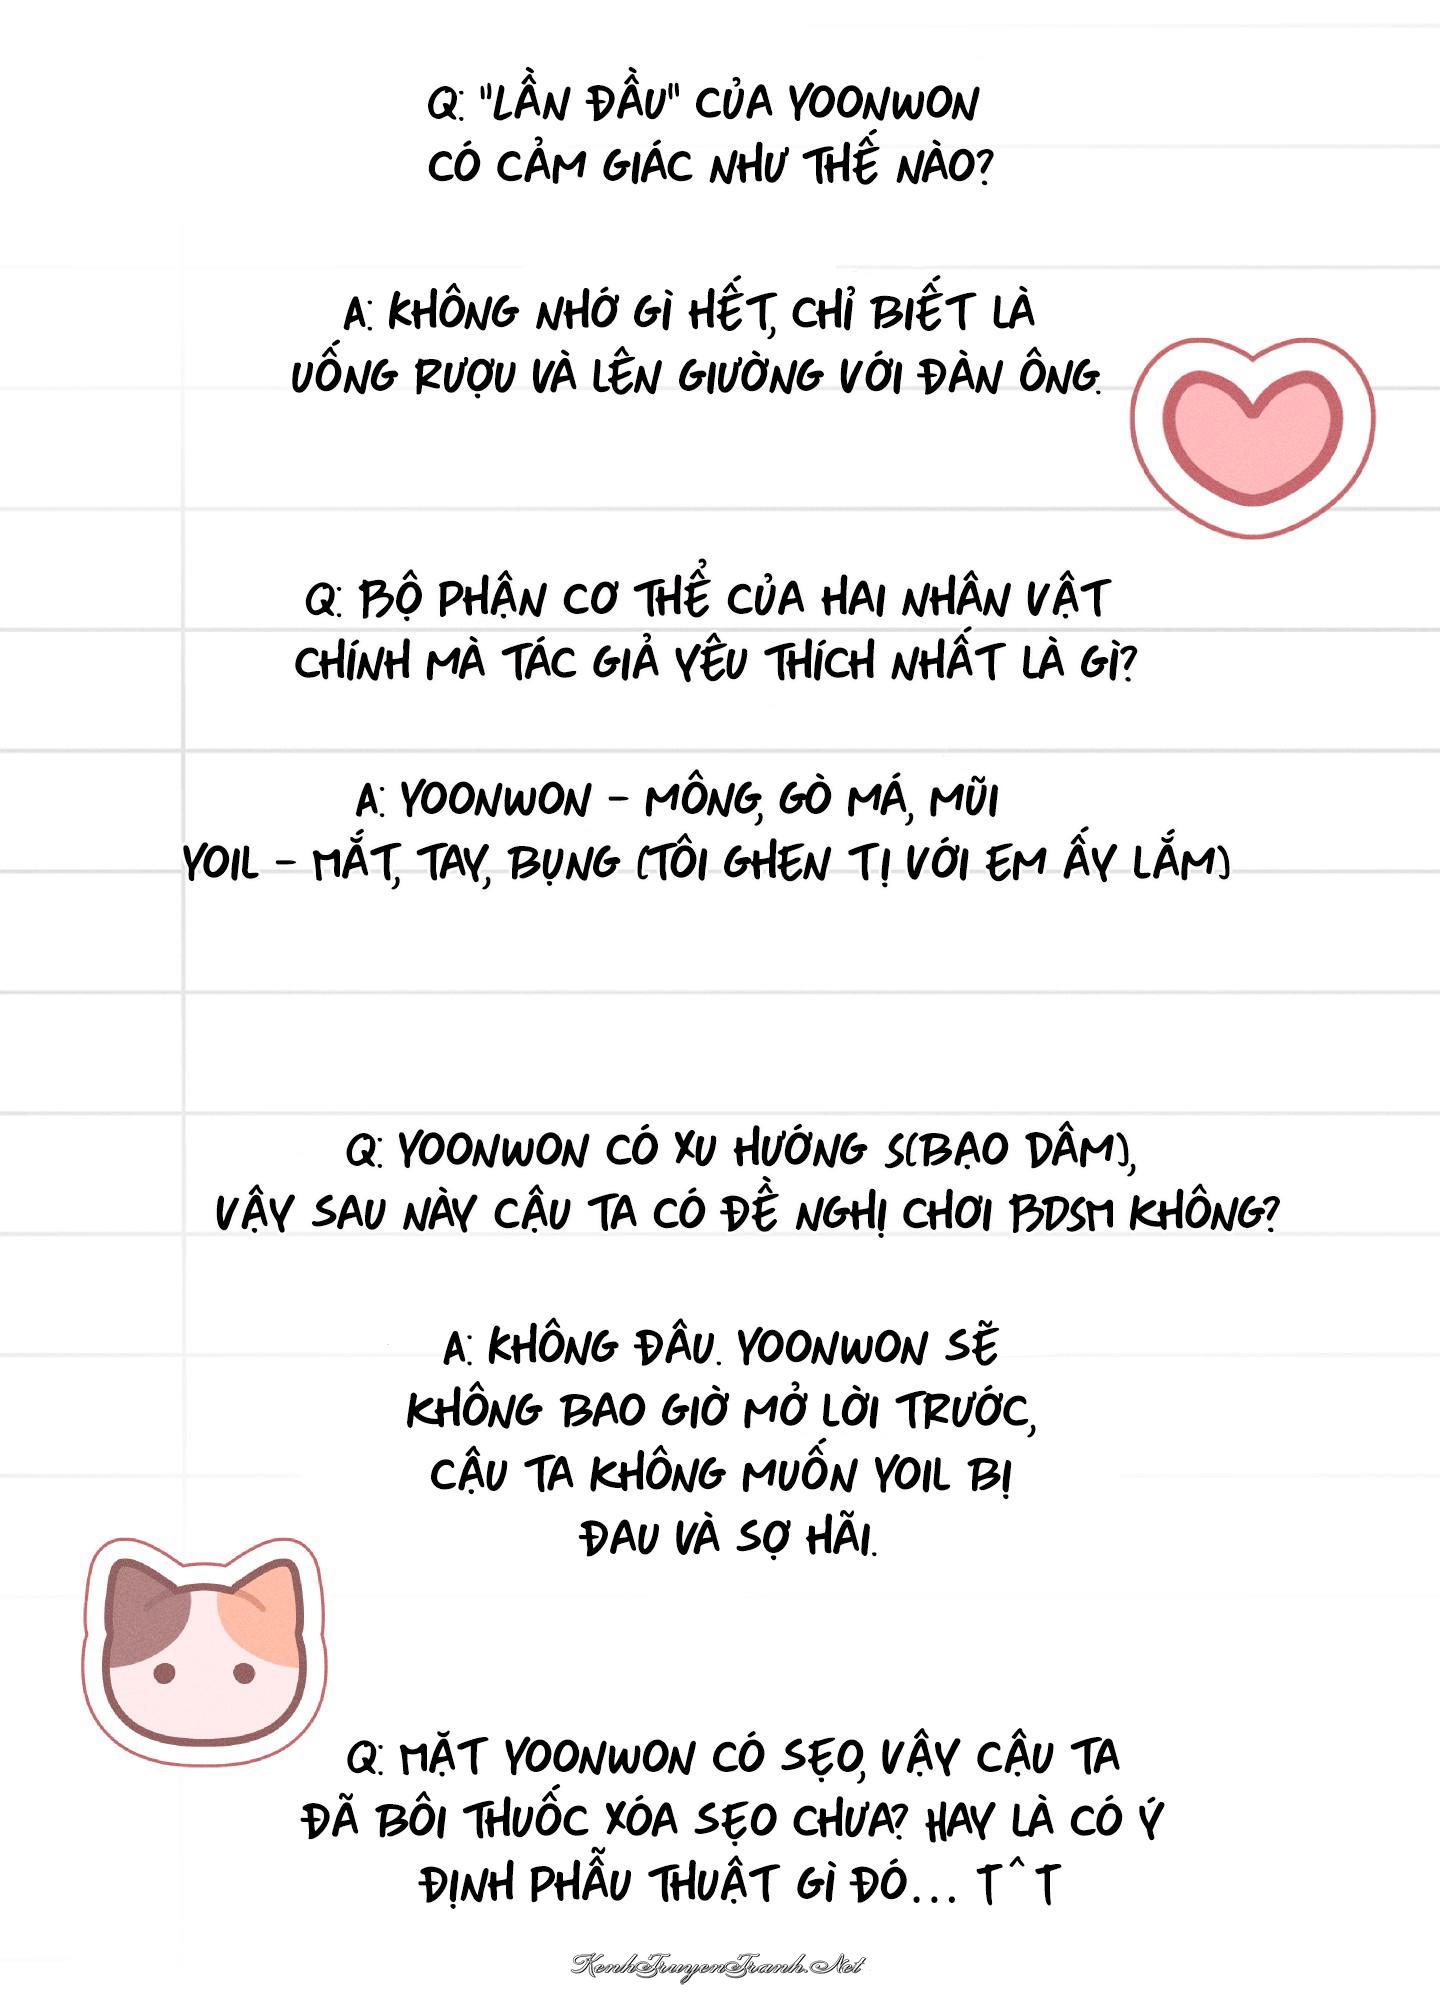 Q: "LẦN ĐẦU" CỦA YOONWON
CÓ CẢM GIÁC NHƯ THẾ NÀO?
A: KHÔNG NHỚ GÌ HẾT, CHỈ BIẾT LÀ
UỐNG RƯỢU VÀ LÊN GIƯỜNG VỚI ĐÀN ÔNG.
Q: BỘ PHẬN CƠ THỂ CỦA HAI NHÂN VẬT
CHÍNH MÀ TÁC GIẢ YÊU THÍCH NHẤT LÀ GÌ?
A: YOONWON - MÔNG, GÒ MÁ, MŨI
YOIL - MẮT, TAY, BỤNG (TÔI GHEN TỊ VỚI EM ẤY LẮM)
Q: YOONWON CÓ XU HƯỚNG S(BẠO DÂM),
VẬY SAU NÀY CẬU TA CÓ ĐỀ NGHỊ CHƠI BDSM KHÔNG?
A: KHÔNG ĐÂU. YOONWON SẼ
KHÔNG BAO GIỜ MỞ LỜI TRƯỚC,
CẬU TA KHÔNG MUỐN YOIL BỊ
ĐAU VÀ SỢ HÃI.
Q: MẶT YOONWON CÓ SẸO, VẬY CẬU TA
ĐÃ BÔI THUỐC XÓA SẸO CHƯA? HAY LÀ CÓ Ý
ĐỊNH PHẪU THUẬT GÌ ĐÓ... T^T
KenhTruyenTranh.Net